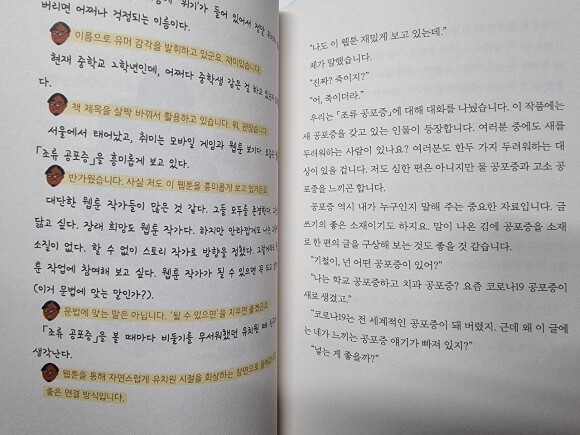 '위기'가 들어 있어서
버리면 어쩌나 걱정되는 이름이다.
이름으로 유머 감각을 발휘하고 있군요. 재미있습니다.
현재 중학교 2학년인데, 어쩌다 중학생 같은 걸 하고
다.
책 제목을 살짝 바꿔서 활용하고 있습니다. 뭐, 괜찮습니다.
서울에서 태어났고, 취미는 모바일 게임과 웹툰 보기다. 요즘은
「조류 공포증」을 흥미롭게 보고 있다.
반가웠습니다. 사실 저도 이 웹툰을 흥미롭게 보고 있거든요.
대단한 웹툰 작가들이 많은 것 같다. 그들 모두를 존경하고
닮고 싶다. 장래 희망도 웹툰 작가다. 하지만 안타깝게도 나는
소질이 없다. 할 수 없이 스토리 작가로 방향을 정했다. 그렇게라도
툰 작업에 참여해 보고 싶다. 웹툰 작가가 될 수 있으면 꼭 되고
(이거 문법에 맞는 말인가?).
문법에 맞는 말은 아닙니다. '될 수 있으면'을 지우면 좋겠군요.
「조류 공포증」을 볼 때마다 비둘기를 무서워했던 유치원 때
생각난다.
웹툰을 통해 자연스럽게 유치원 시절을 회상하는 장면으로
좋은 연결 방식입니다.
"나도 이 웹툰 재밌게 보고 있는데."
제가 말했습니다.
"진짜? 죽이지?"
"어, 죽이더라."
우리는 「조류 공포증」에 대해 대화를 나눴습니다. 이 작품에는
새 공포증을 갖고 있는 인물이 등장합니다. 여러분 중에도 새를
두려워하는 사람이 있나요? 여러분도 한두 가지 두려워하는 대
상이 있을 겁니다. 저도 심한 편은 아니지만 물 공포증과 고소 공
포증을 느끼곤 합니다.
공포증 역시 내가 누구인지 말해 주는 중요한 자료입니다. 글
쓰기의 좋은 소재이기도 하지요. 말이 나온 김에 공포증을 소재
로 한 편의 글을 구상해 보는 것도 좋을 것 같습니다.
"기철이, 넌 어떤 공포증이 있어?"
"나는 학교 공포증하고 치과 공포증? 요즘 코로나19 공포증이
새로 생겼고."
"코로나19는 전 세계적인 공포증이 돼 버렸지. 근데 왜 이 글에
는 네가 느끼는 공포증 얘기가 빠져 있지?"
"넣는 게 좋을까?"